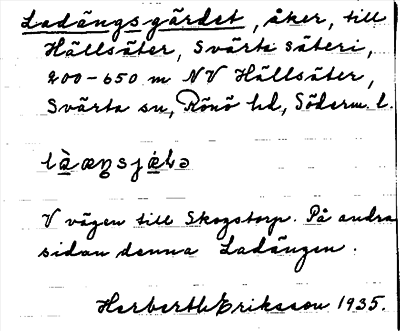 Ladängsgärdet, åker, till
Hällsäter, Svärta säteri,
200-650 m NV Hällsäter,
Svärta sn, Rönö hd, Söderm. l.
V vägen till Skogstorp. På andra
sidan denna Ladängen.
Herberth Eriksson 1935.